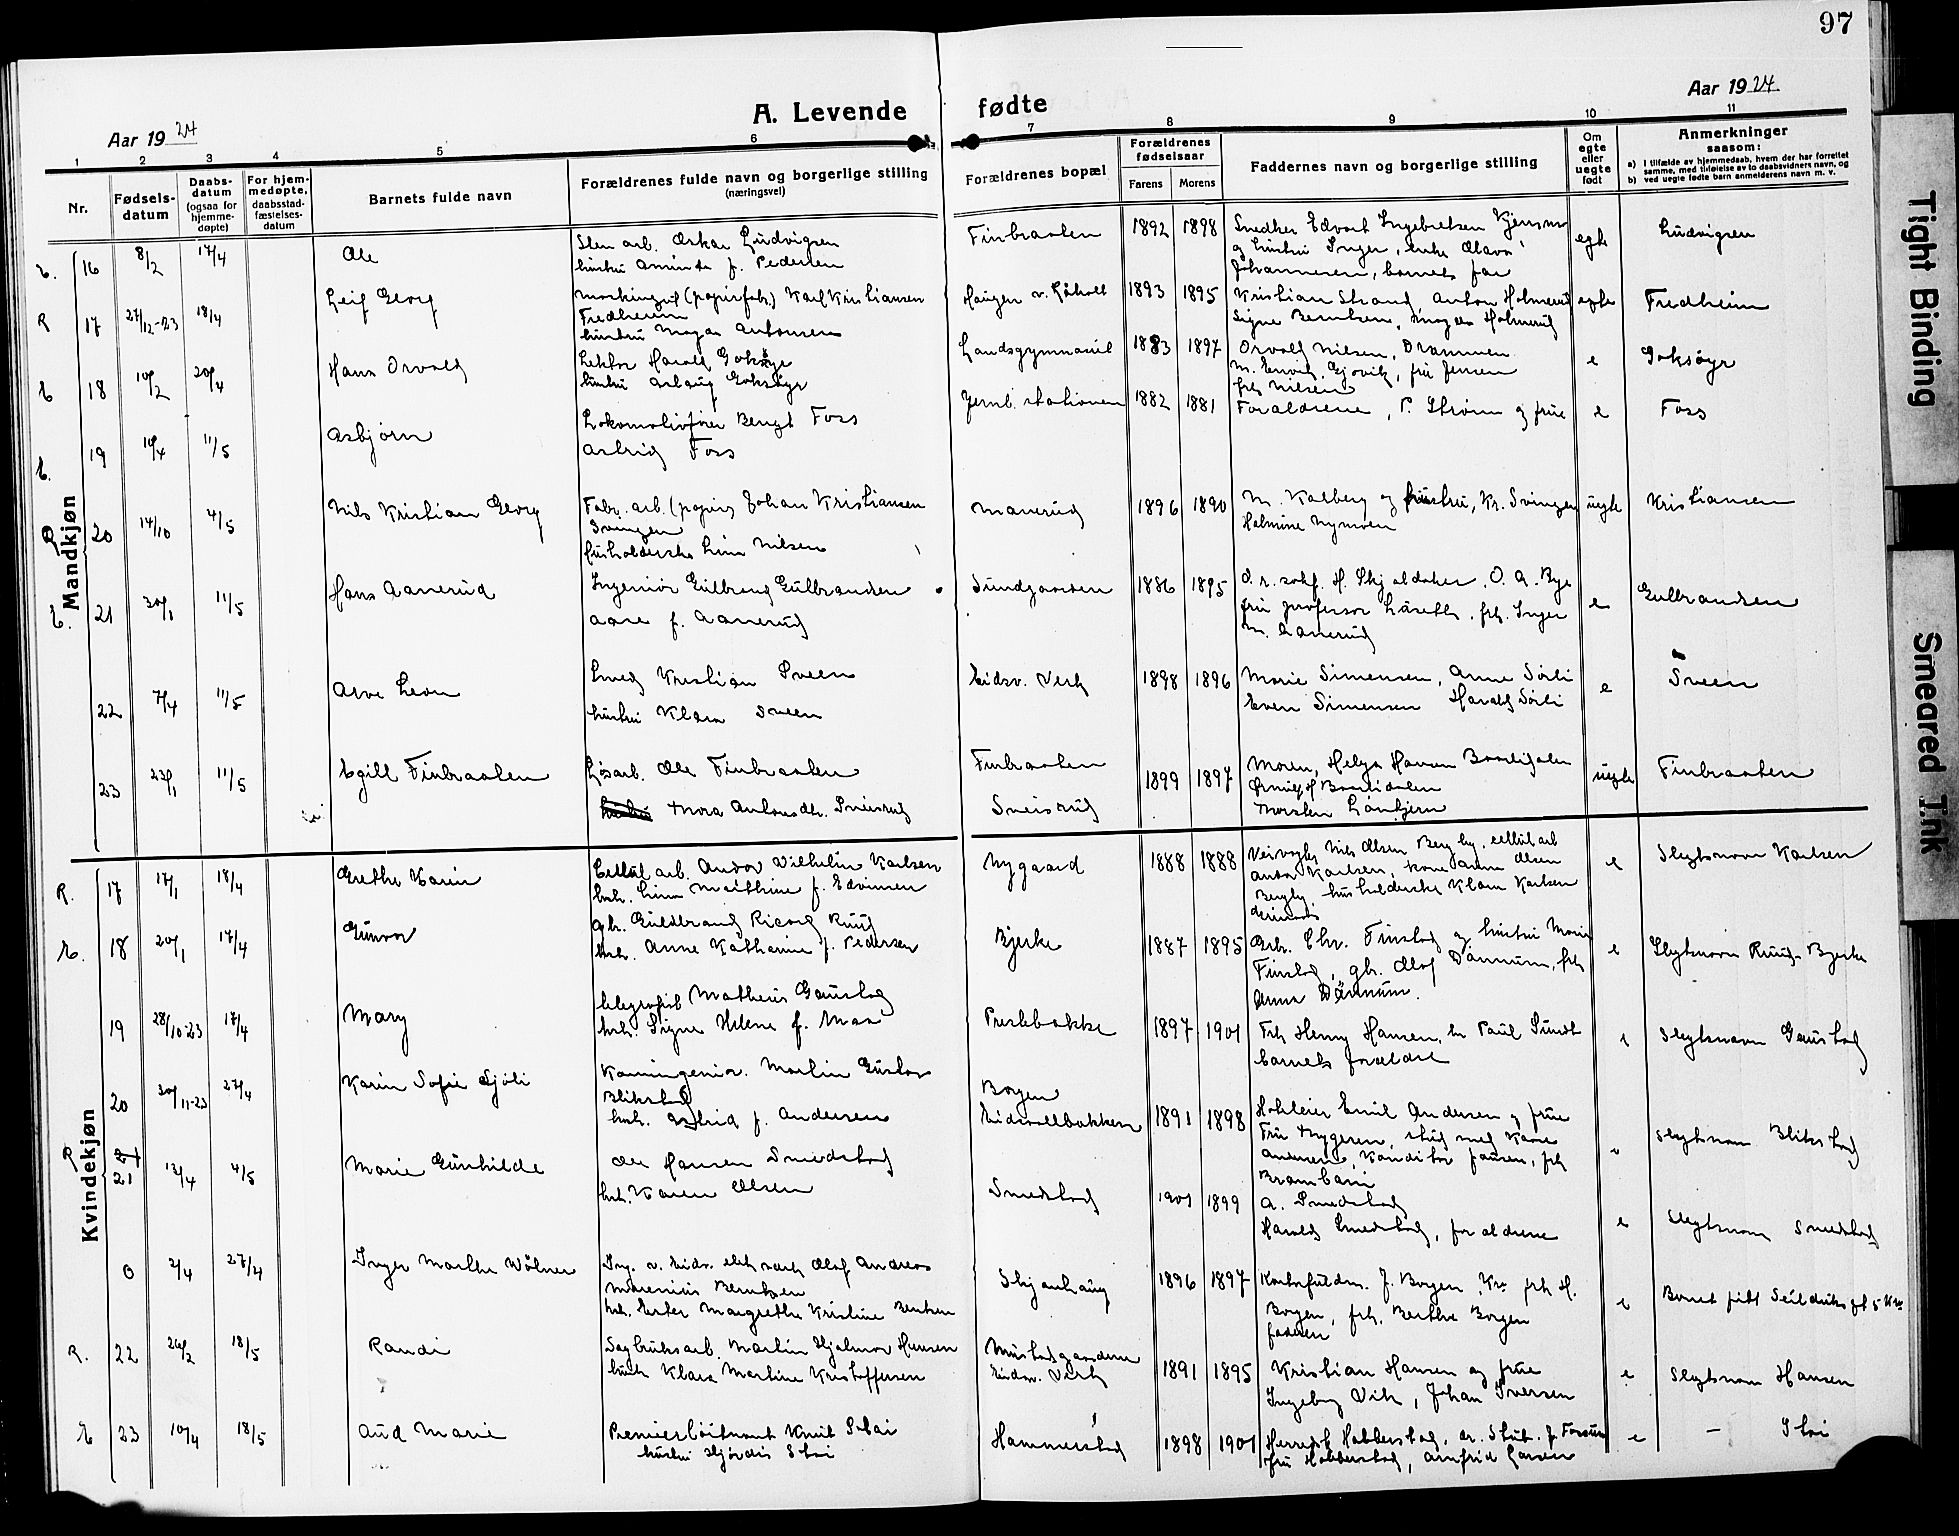 97
A. Levende fødte
Aar 1924
Aar 1924
1 2 3 4 5 6 7 8 9 10 11
Nr.
Fødsels-
datum
Daabs-
datum
(ogsaa for
hjemme-
døpte)
For hjem-
medøpte,
daabsstad-
fæstelses-
datum
Barnets fulde navn
Forældrenes fulde navn og borgerlige stilling
(næringsvei)
Forældrenes bopæl
Forældrenes
fødselsaar
Farens Morens
Faddernes navn og borgerlige stilling
Om
egte
eller
uegte
født
Anmerkninger
saasom:
a) I tilfælde av hjemmedaab, hvem der har forrettet
samme, med tilføielse av to daabsvidners navn, og
b) ved uegte fødte barn anmelderens navn m. v.
Mandkjøn
E. 16 8/2 17/4 Ole
Sten arb. Oskar Ludvigsen
hustru Aminda f. Pedersen
Finbraaten 1892 1898
Snedker Edvart Ingebretsen
og hustru Inger, enke Olava
Johannesen, barnets far
egte Ludvigsen
R 17 27/12-23 18/4 Leif Georg
Maskingut (papirfabr.) Karl Kristiansen
Fredheim
hustru Magda Antonsen
Haugen v. Råholt 1893 1895
Kristian Strand, Anton Holmerud
Signe Berntsen, Magda Holmerud
egte Fredheim
E 18 10/2 20/4 Hans Orvald
Lektor Harald Goksøyr
hustru Aslaug Goksøyr
Landsgymnasiet 1883 1897
Orvald Nilsen, Drammen
M. Envid, Gjøvik, fru Jensen
frk Nilsen
e Goksøyr
E. 19 10/4 11/5 Asbjørn
Lokomotivfører Bengt Foss
Astrid Foss
Jernb. stationen 1882 1881
Forældrene, P. Strøm og frue
e Foss
R 20 14/10 4/5 Nils Kristian Georg
Fabr. arb. (papir) Johan Kristiansen
Svingen
Husholderske Lina Nilsen
Manerud 1896 1890
M. Kalberg og hustru, Kr. Svingen
Halmine Nymoen
uegte Kristiansen
E. 21 30/1 11/5 Hans Aanerud
Ingeniør Gulbrand Gulbrandsen
Aase f. Aanerud
Sundgaarden 1886 1895
O. r. sakf. H. Skjoldaker, O. A. Bye
fru professor Lüseth, frk. Inger
M. Aanerud
e Gulbrandsen
22 7/4 11/5 Arve Leon
Smed Kristian Sveen
hustru Klara Sveen
Eidsv. Verk 1898 1896
Marie Simensen, Anne Sørli
Even Simensen Harald Sørli
e Sveen
23 23/1 11/5 Egill Finbraaten
Løsarb. Ole Finbraaten
Thora Antonsdtr. Sneisrud
Finbraaten
Sneisrud
1899 1897
Moren, Helga Hansen Baardidalen
Ørnulf Baardidalen
Torsten Lønhjem
uegte Finbraaten
Kvindekjøn
R. 17 17/1 18/4 Grethe Karin
Cellul. arb. Andor Vilhelm Karlsen
hus. Lina Mathine f. Edvinsen
Nygaard 1888 1888
Veivogter Nils Olsen Bergby, cellul arb
Anton Karlsen, kone Anna Olsen
Bergby, husholderske Klara Karlsen
e Slegtsnavn Karlsen
E. 18 20/1 17/4 Gunvor
gbr. Guldbrand Ricard Ruud
hus. Anne Katharine f. Pedersen
Bjerke 1887 1895
Gbr. Chr. Finstad og hustru Marie
Finstad, gbr. Olaf Dønnum, frk
Anna Dønnum.
e Slegtsnavn Ruud-Bjerke
19 28/10-23 17/4 Mary
telegrafist Matheus Gaustad
hus. Signe Helene f. Moe
Prestebakke 1897 1901
Frk Henny Hansen, hr Paul Sundt
barnets forældre
e Slegtsnavn Gaustad
20 30/11-23 27/4 Karin Sofie Sjøli
Kaningeniør. Martin Gustav
Blikstad
hus. Astrid f. Andersen
Borgen
Eidsvoldbakken 1891 1898
Hotleier Emil Andersen og frue
Fru Nygeren, stud med Kaare
Andersen, Kanditor Paulsen, frk
Brambani
e Slegtsnavn Blikstad
R 21 13/4 4/5 Marie Gunhilde
Ole Hansen Smedstad
hus. Karen Olsen
Smedstad 1901 1899
A. Smedstad
Harald Smedstad, forældrene
e Slegtsnavn Smedstad
0 2/4 27/4 Inger Marthe Wølner
Ing. v. Eidsv. elek. verk Olaf Andreas
Marenius Berntsen
hus. Ester Margrethe Kristine Berntsen
Skjønhaug 1896 1897
Kontorfuldm. J. Borgen, Kra. frk H.
Borgen, frk. Berthe Borgen
faderen
e
R. 22 26/2 18/5 Randi
Sagbruksarb. Martin Hjalmar Hansen
hus. Klara Martine Kristoffersen
Mustadgaardene
Eidsv. Verk 1891 1895
Kristian Hansen og frue
Ingeborg Vik, Johan Iversen
e Slegtsnavn Hansen
E 23 10/4 18/5 Aud Marie
Premierløitnant Knut Stai
hustru Hjørdis Stai
Hammerstad 1898 1901
Herredsk. Habberstad, or. Stub. J. Fossum
fru Habberstad, Arnfrid Larsen
e — Stai
Tight Binding
Smeared Ink